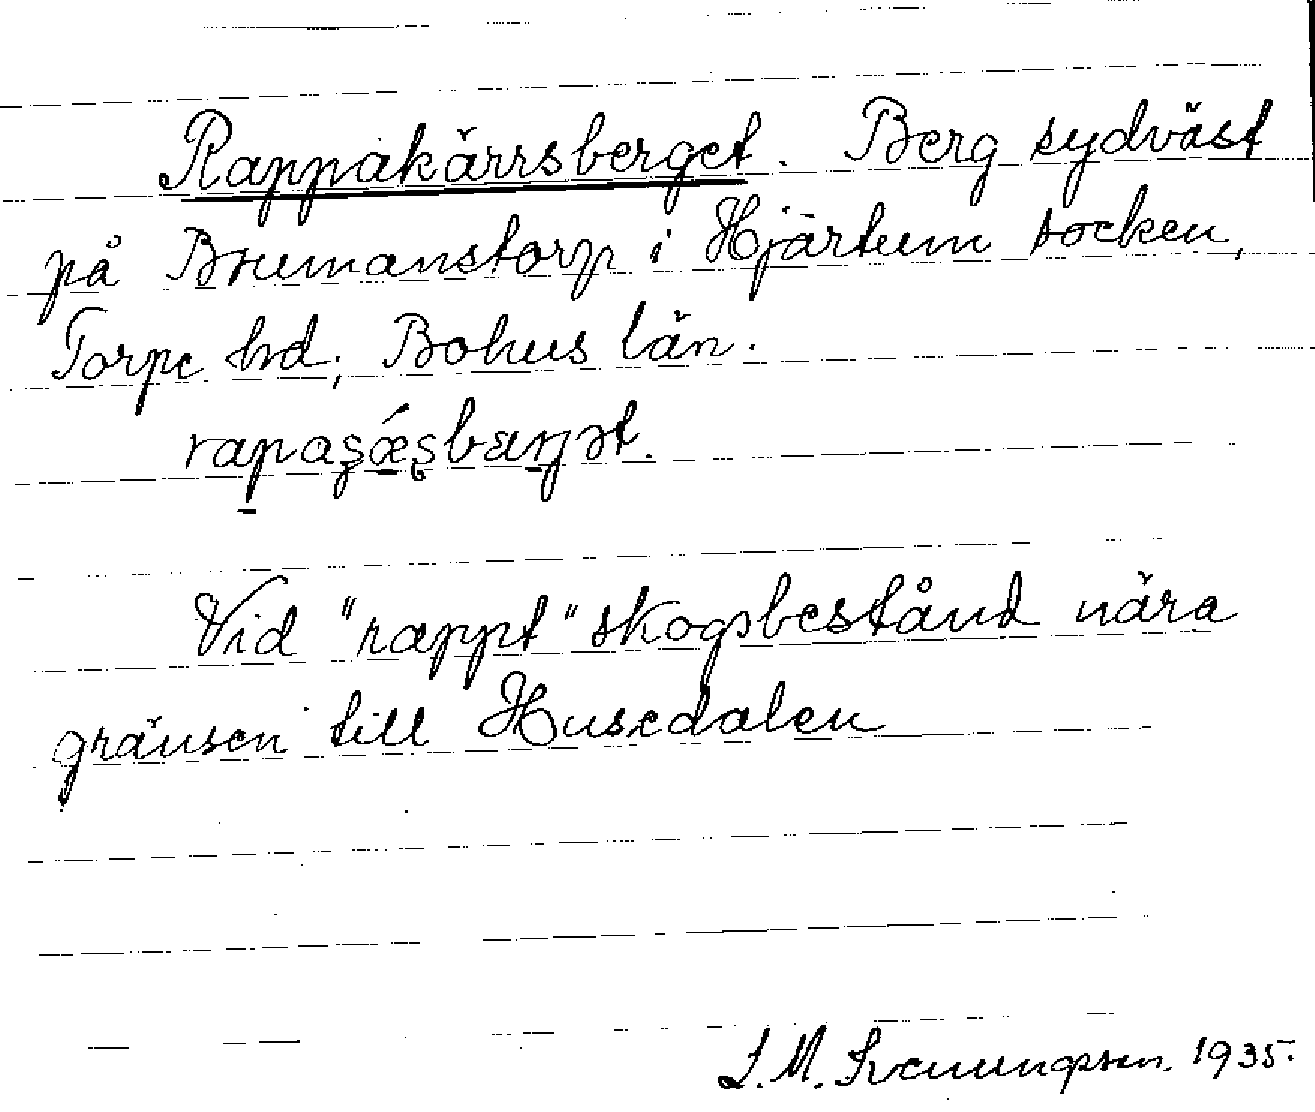 Rappakärrsberget. Berg sydväst
på Brumanstorp i Hjärtum socken,
Torpe hd, Bohus län.
Vid "rappt" skogsbestånd nära
gränsen till Husedalen
S. M. Svenungsson. 1935.